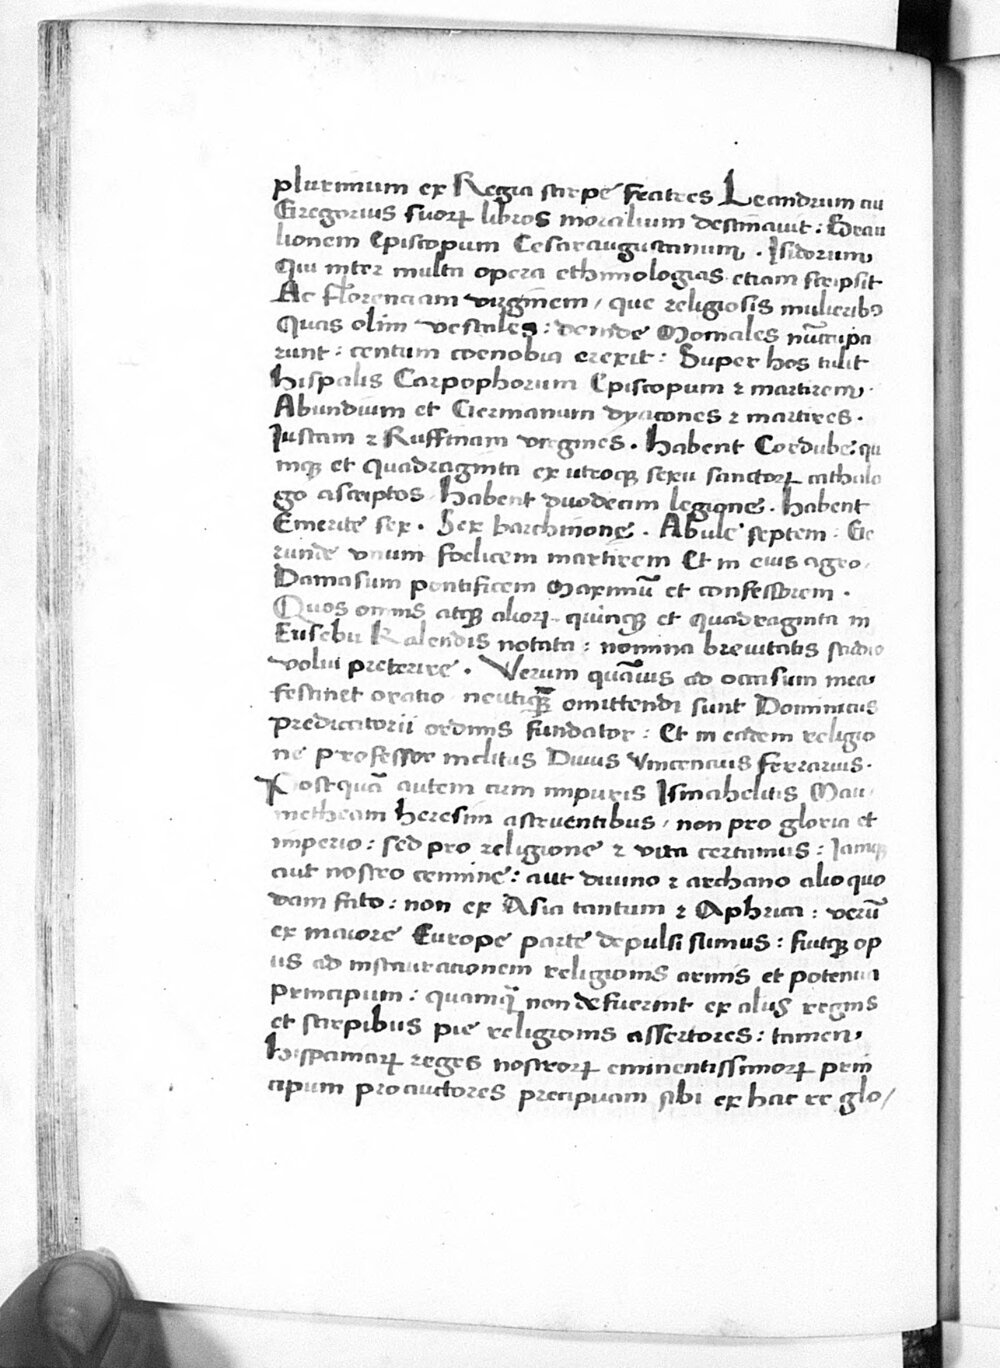 plurimum ex Regia stirpe fratres Leandrum cui
Gregorius suoꝝ libros moralium destinauit : Brau
lionem Episcopum Cesaraugustanum . Isidorum
Qui inter multa opera ethimologias etiam scripsit
Ac florenciam virginem / que religiosis mulieribꝰ
Quas olim vestales : deinde Moniales nũcupa
runt : centum coenobia erexit : Super hos tulit
hispalis Carpophorum Episcopum ⁊ martirem .
Abundium et Germanum dyacones ⁊ martires .
Iustam ⁊ Ruffinam virgines . habent Cordube qui
inqꝫ et quadraginta ex utroqꝫ sexu sanctoꝝ cathalo
go ascriptos habent duodecim legione . habent
Emerite sex . Sex barchinone . Abule septem : Ge
runde vnum foelicem martirem Et in eius agro /
Damasum pontificem Maximũ et confessorem .
Quos omnis atqꝫ alioꝝ quinqꝫ et quadraginta in
Eusebii Kalendis notata : nomina breuitatis studio
volui preterire . Verum quãuis ad occasum mea
festinet oratio neutiqꝫ omittendi sunt Dominicus
predicatorii ordinis fundator : Et in eadem religio
ne professor inclitus Diuus Vincencius ferrarius .
Postquã autem cum impuris Ismahelitis Mau
metheam heresim astruentibus / non pro gloria et
imperio : sed pro religione ⁊ vita certamus : Iamqꝫ
aut nostro crimine : aut diuino ⁊ archano alio quo
dam fato : non ex Asia tantum ⁊ Aphrica : verũ
ex maiore Europe parte depulsi sumus : fuitqꝫ op
us ad instaurationem religionis armis et potentia
principum : quamqꝫ non defuerint ex aliis regnis
et stirpibus pie religionis assertores : tamen
hispaniaꝝ reges nostroꝝ eminentissimoꝝ prin
cipum proauctores precipuam sibi ex hac re glo /